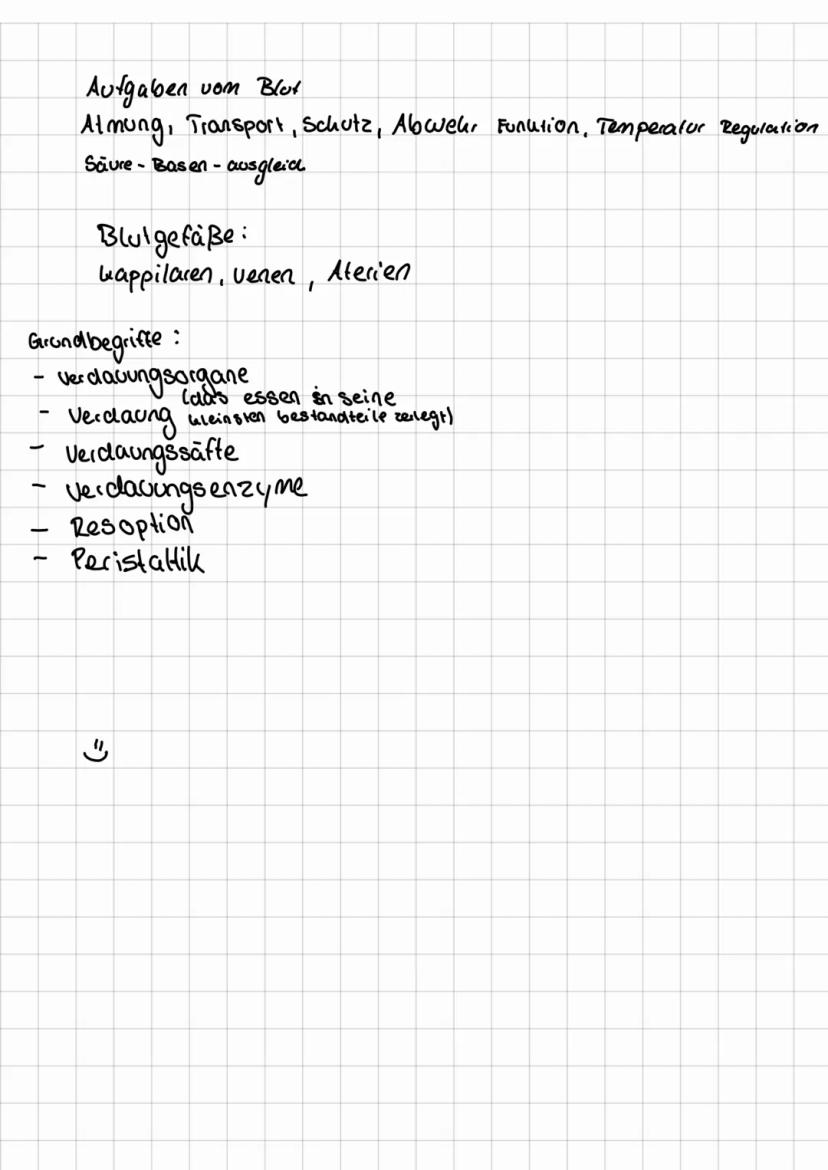 Aufgaben vom Blut
Atmung, Transport, Schutz, Abwehr Funktion, Temperatur Regulation
Säure - Basen - ausgleich
Blutgefäße:
kappilaren, venen, Aterien
Grundbegriffe:
- Verdauungsorgane
- Verdaung (das essen in seine
kleinsten bestandteile zerlegt)
- Verdaungssäfte
- Verdauungsenzyme
- Resoption
- Peristaltik